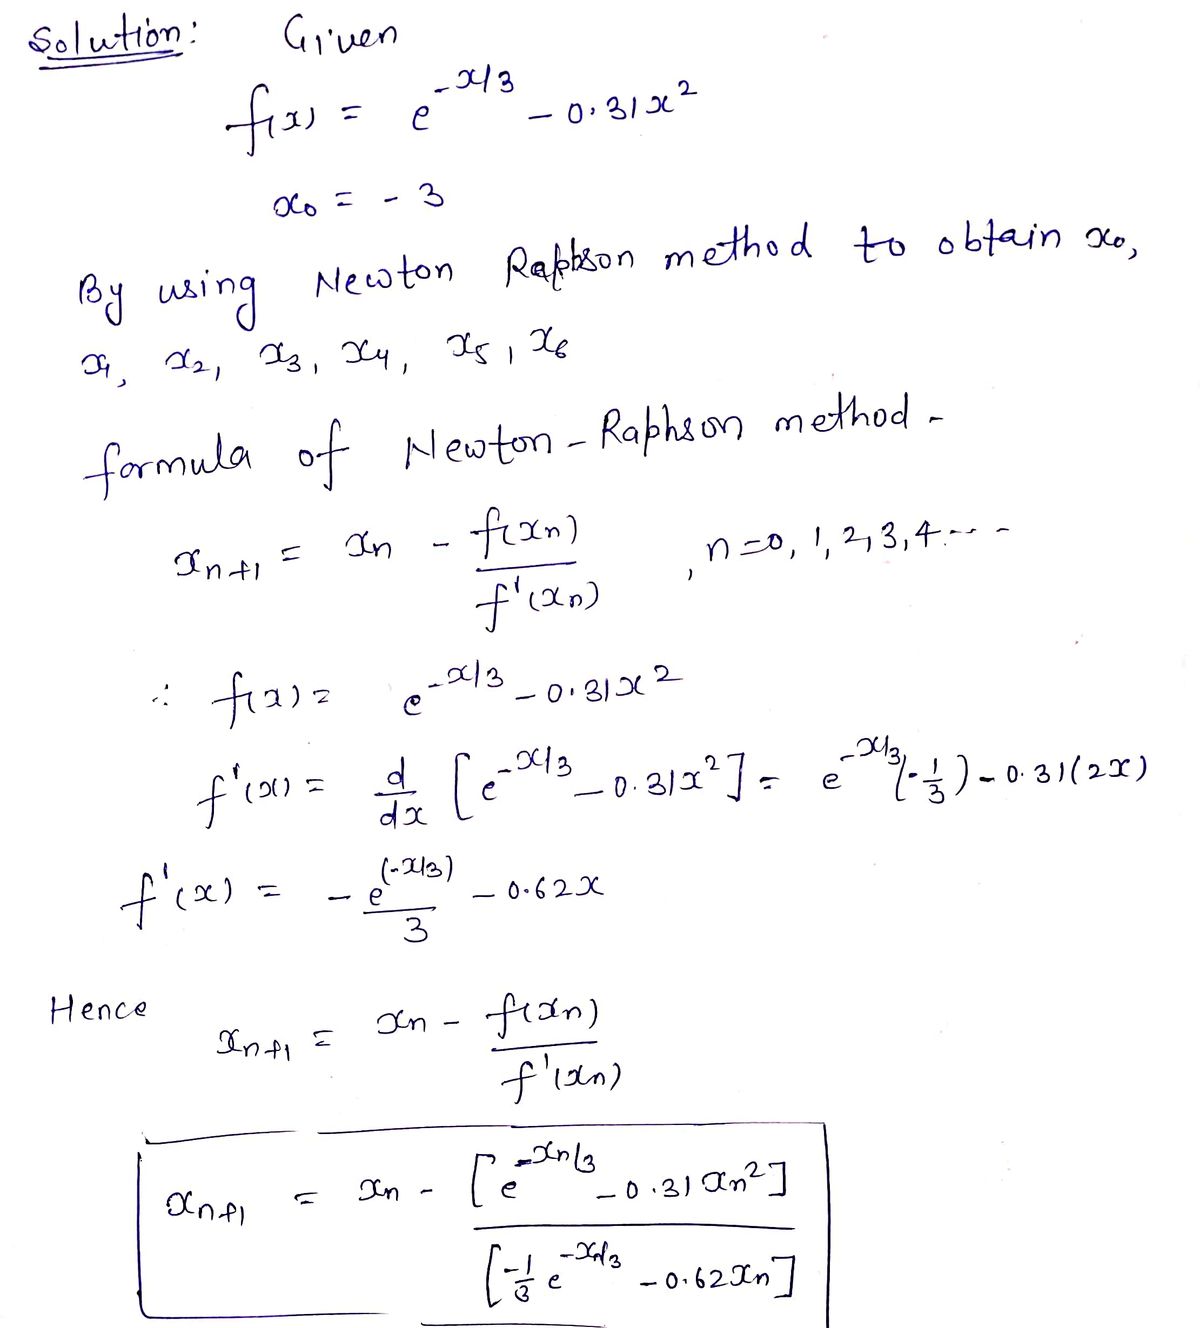 Solution: Given
f(x) = e^{-x/3} - 0.31x^2
x_0 = -3
By using Newton Raphson method to obtain x_0,
x_1, x_2, x_3, x_4, x_5, x_6
formula of Newton-Raphson method-
x_{n+1} = x_n - f(x_n)/f'(x_n) , n=0,1,2,3,4....
∴ f(x) = e^{-x/3} - 0.31x^2
f'(x) = d/dx [e^{-x/3} - 0.31x^2] = e^{-x/3}(-1/3) - 0.31(2x)
f'(x) = -e^{(-x/3)}/3 - 0.62x
Hence
x_{n+1} = x_n - f(x_n)/f'(x_n)
x_{n+1} = x_n - [e^{-x_n/3} - 0.31x_n^2]/[-1/3 e^{-x_n/3} - 0.62x_n]